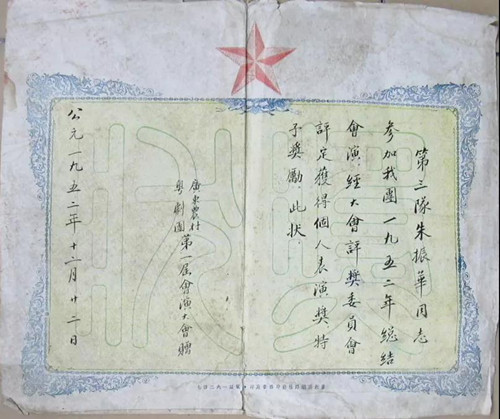 第三隊朱振華同志
參加我團一九五二年總結
會演經大會評獎委員會
評定獲得個人表演獎特
予獎勵此狀
廣東農村
粵劇團第一屆會演大會贈
公元一九五二年十二月廿二日
獎狀